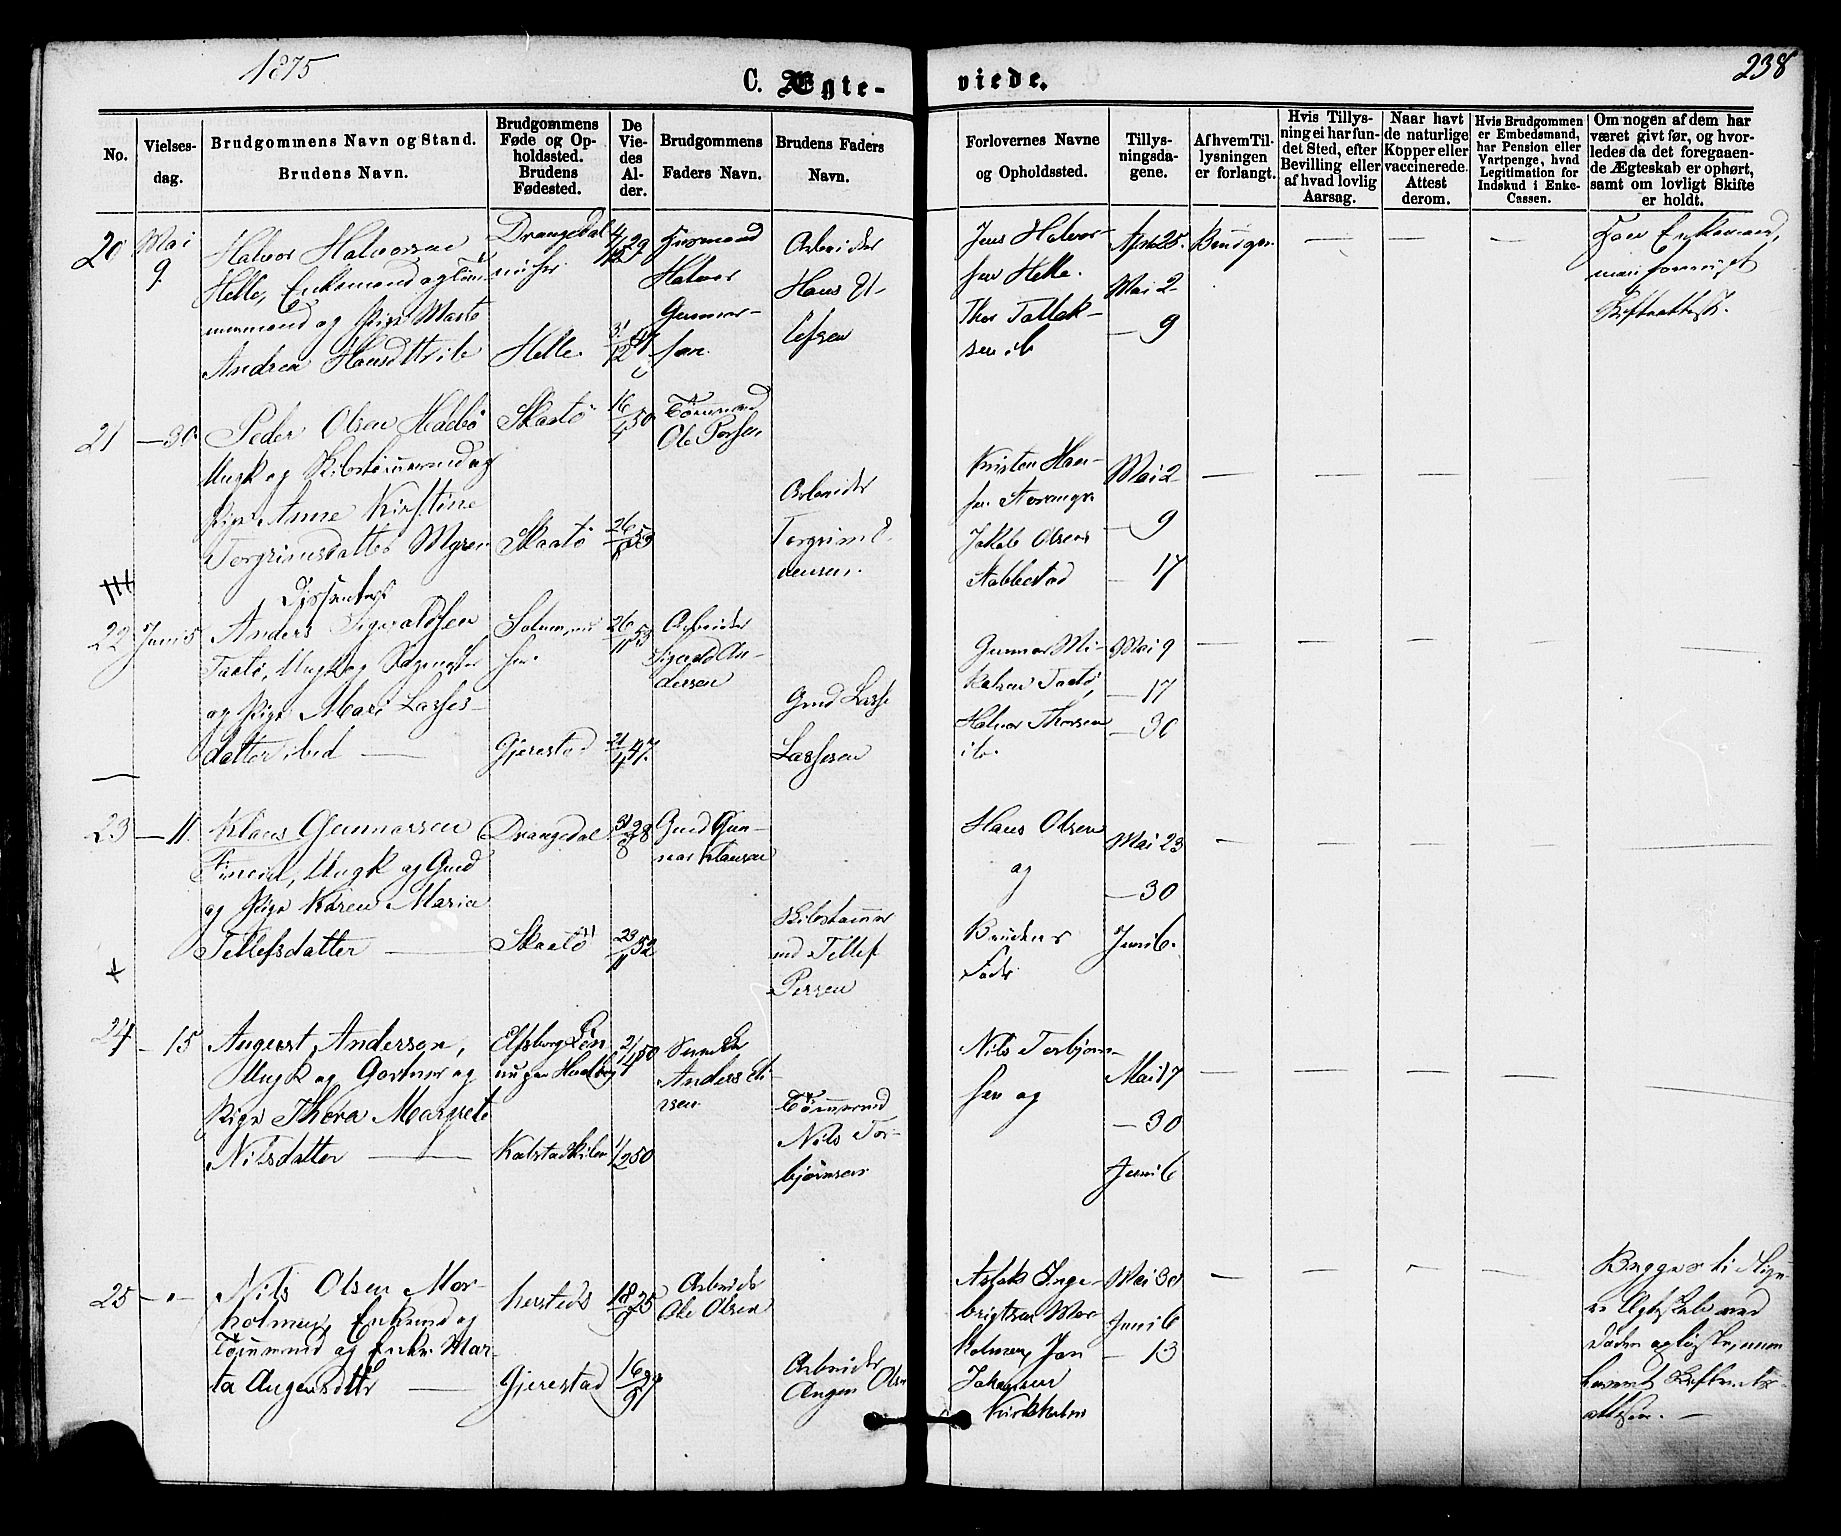 1875
238
C. Ægte-
viede.
No.
Vielses-
dag.
Brudgommens Navn og Stand.
Brudens Navn.
Brudgommens
Føde og Op-
holdssted.
Brudens
Fødested.
De
Vie-
des
Al-
der.
Brudgommens
Faders Navn.
Brudens Faders
Navn.
Forlovernes Navne
og Opholdssted.
Tillys-
ningsda-
gene.
Af hvem Til-
lysningen
er forlangt.
Hvis Tillys-
ning ei har fun-
det Sted, efter
Bevilling eller
af hvad lovlig
Aarsag.
Naar havt
de naturlige
Kopper eller
vaccinerede.
Attest
derom.
Hvis Brudgommen
er Embedsmand,
har Pension eller
Vartpenge, hvad
Legitimation for
Indskud i Enke-
Cassen.
Om nogen af dem har
været givt før, og hvor-
ledes da det foregaaen-
de Ægteskab er ophørt,
samt om lovligt Skifte
er holdt.
20
Mai
9
Halvor Halvorsen
Helle, Enkemand og Tøm-
mermand og Pige Marte
Andrea Hansdtr ib
Drangedal
Helle
4/12 29
31/12
Husmand
Halvor
Gunnar-
sen
Arbeider
Hans El-
lefsen
Jens Halvor-
sen Helle
Thor Tallak-
sen ib
April 25.
Mai 2
— 9
Brudgom
Han Enkemand,
Skifteattest.
21
— 30
Peder Olsen Hødebø
Ungk og Skibstømmermd og
Pige Anne Kirstine
Torgrimsdatter Myren
Skaatø
Skaatø
16/4 50
26/8 53
Tømmermd
Ole Persen
Arbeider
Torgrim E-
vensen
Kristen Han-
sen
Jakob Olsen
Stabbestad
Mai 2
— 9
— 17
22
Juni 5
Dissenter
Anders Sigvaldsen
Taatø, Ungk og Sagmester
og Pige Mari Lasses-
datter ibid
Solum,
Gjerestad
26/11 53
21/4 47
Arbeider
Sigvald An-
dersen
Gmd Lasse
Lassesen
Gunnar Mi-
kalsen Taatø,
Halvor Thorsen
ib.
Mai 9
— 17
— 30
23
— 11
Klaus Gunnarsen
Ungk og Gmd
og Pige Karen Maria
Tellefsdatter
Drangedal
Skaatø
31/8 28
23/11 52
Gmd Gun-
nar Klausen
Skibstømmer
md Tellef
Persen
Hans Olsen
og
Brudens
Fader
Mai 23
— 30
Juni 6.
24
— 15
August Anderson,
Ungk og Gartner og
Pige Thora Margrete
Nilsdatter
Elfsborg Län
Kalstadkilen
21/4 50
1/2 50
Svensk
Anders
Tømmermd
Nils Tor-
bjørnsen
Nils Torbjørn-
sen og
Mai 17
— 30
Juni 6
25
— " —
Nils Olsen Mor-
holmen, Enkemd og
Tømmermd og Enke Mar-
ta Aagensdtr
Gjerestad
18/9 25
16/9 27
Arbeider
Ole Olsen
Arbeider
Aagen Olsen
Aslak Inge-
brigtsen Mor-
holmen, Jan
Johansen
Kirkeholm
Mai 30
Juni 6
— 13
Begges tidlige-
re Ægteskab ved
Døden opløst